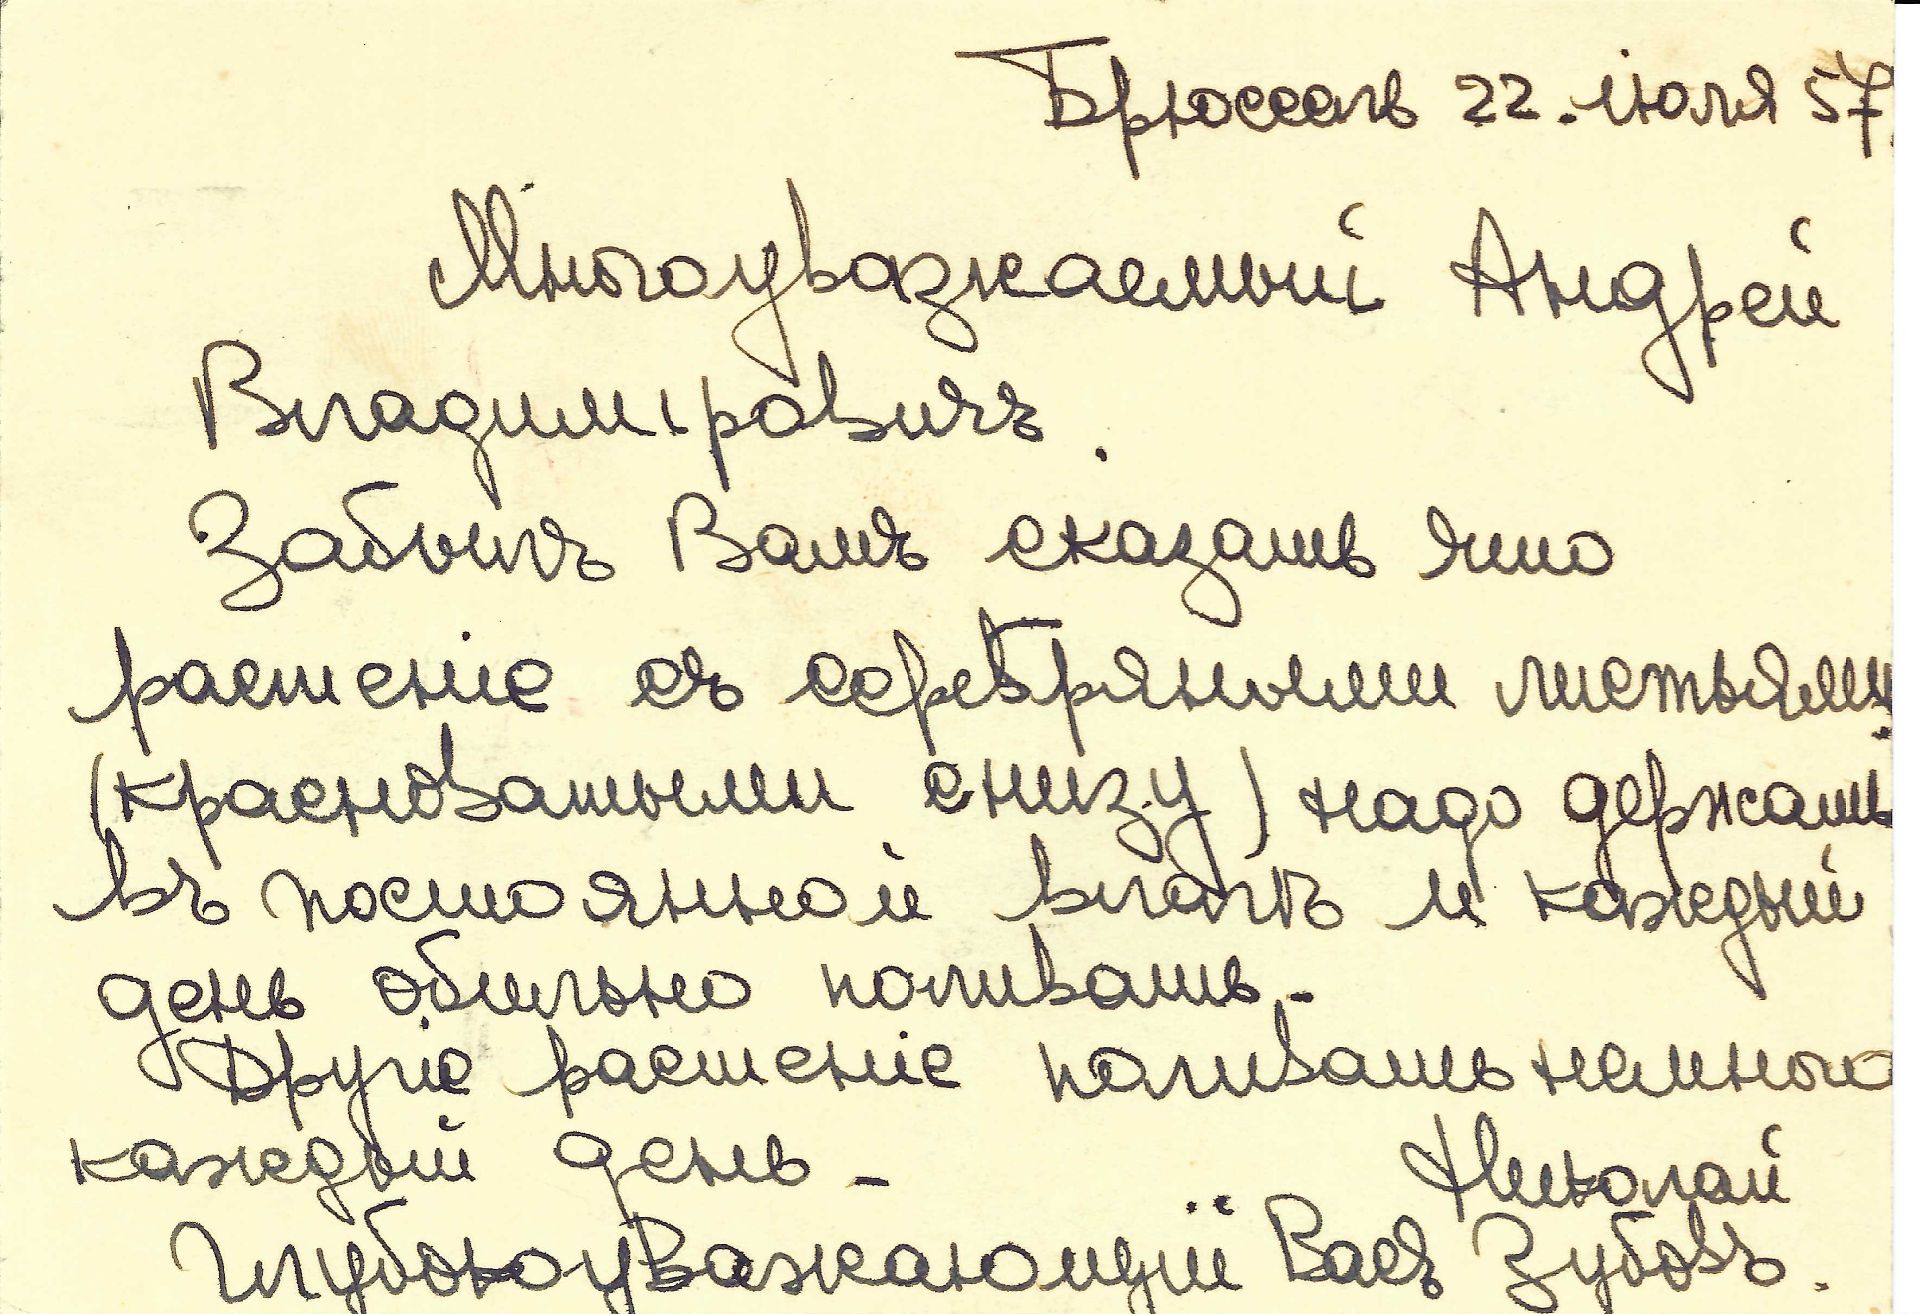 Брюссель 22. июля 57.
Многоуважаемый Андрей
Владиміровичъ.
Забылъ Вамъ сказать что
растеніе съ серебряными листьями
(красноватыми снизу) надо держать
въ постоянной влагѣ и каждый
день обильно поливать.
Другіе растеніе поливать немного
каждый день. –
Николай
Глубокоуважающій Васъ Зубовъ.